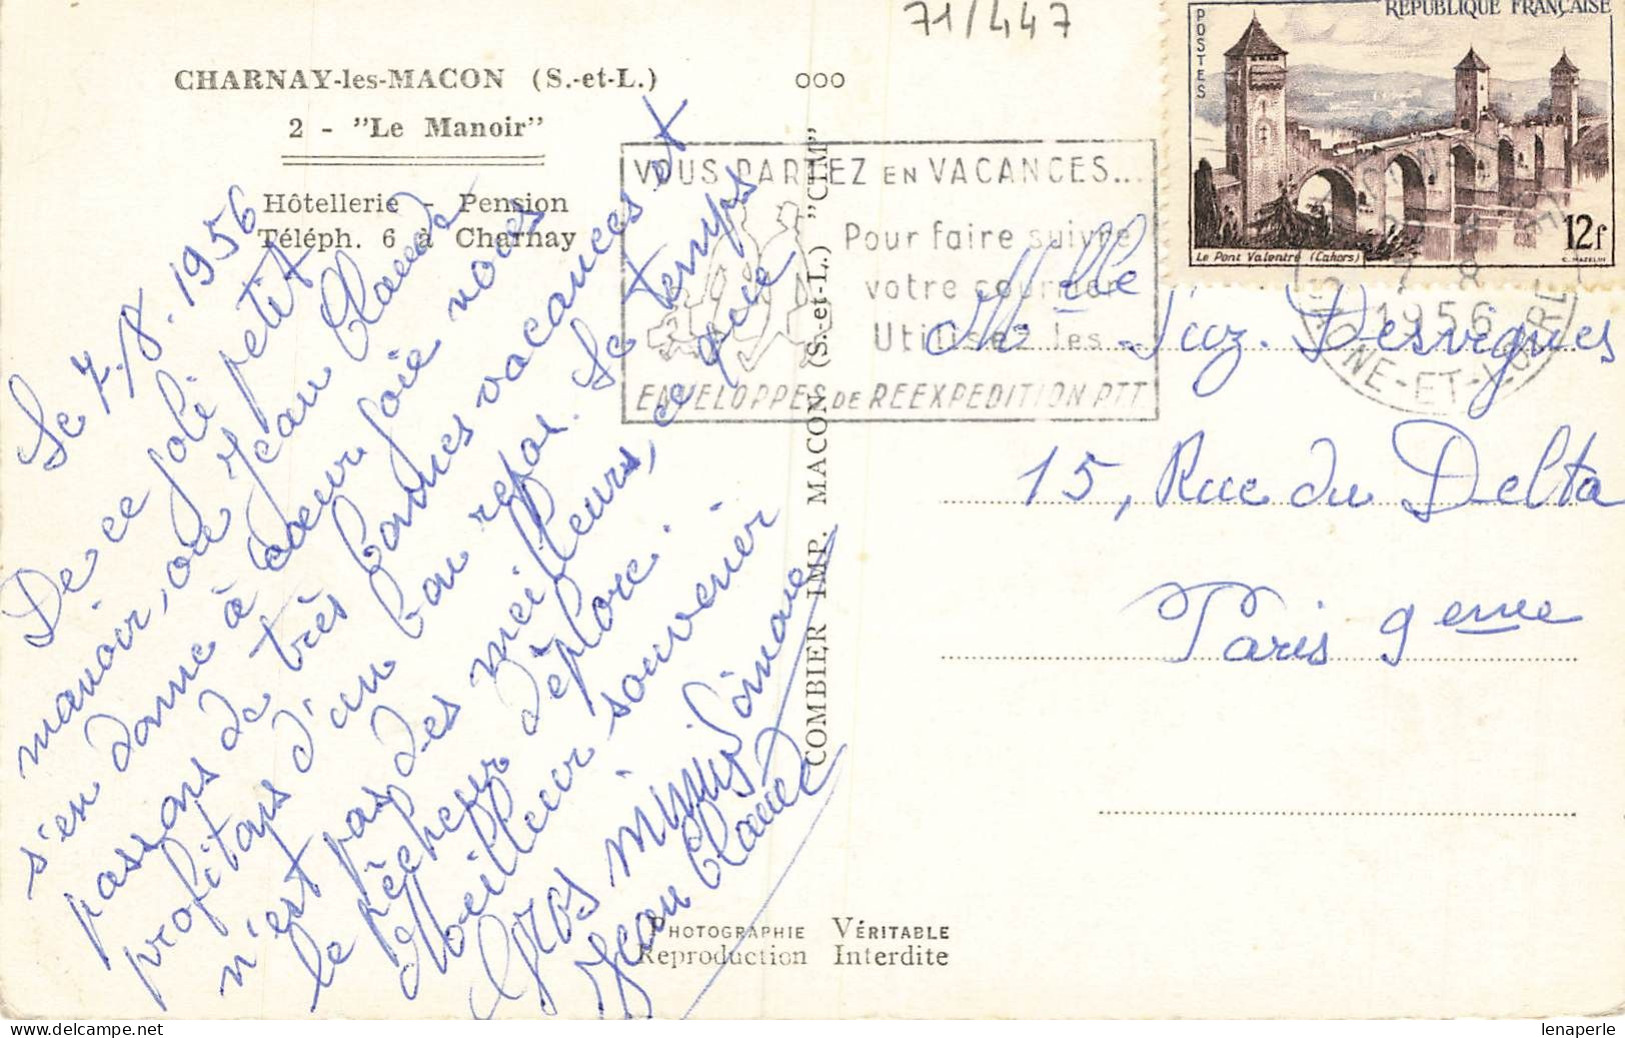 71/447
CHARNAY-les-MACON (S.-et-L.) ooo
2 - "Le Manoir"
Hôtellerie - Pension
Téléph. 6 à Charnay
REPUBLIQUE FRANÇAISE
POSTES
12f
Le Pont Valentré (Cahors)
C. MAZELIN
VOUS PARTEZ EN VACANCES...
Pour faire suivre
votre courrier
Utilisez les
ENVELOPPES DE REEXPEDITION PTT
1956
SAONE-ET-LOIRE
Le 7.8.1956
De ce joli petit
manoir, où Jean Claude
s'en donne à coeur joie nous
passons de très bonnes vacances et
profitons d'un bon repos. Le temps
n'est pas des meilleurs, ce que
le pêcheur déplore.
Meilleur souvenir
Gros mimis Simone
Jean Claude
COMBIER IMP. MACON (S.-et-L.) "CIM"
Melle Desvignes
15, Rue du Delta
Paris 9eme
PHOTOGRAPHIE VÉRITABLE
Reproduction Interdite
lenaperle